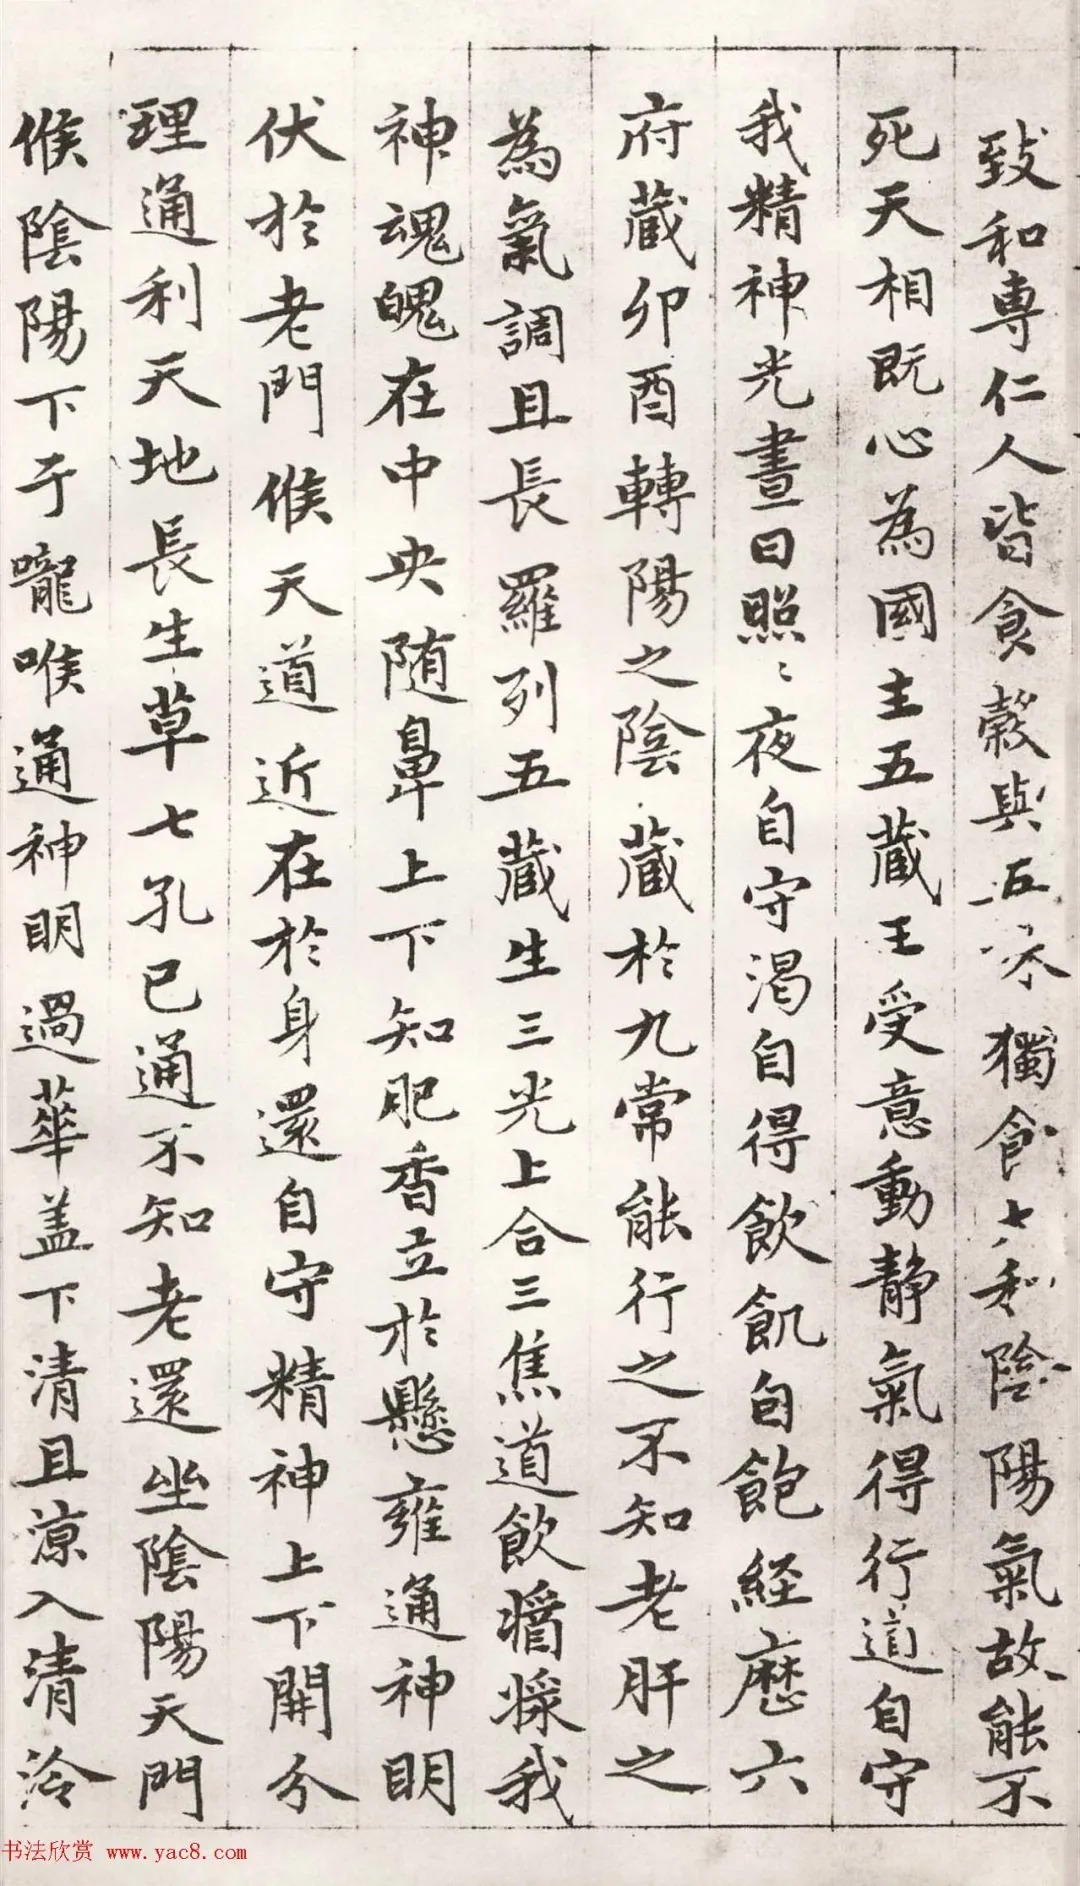 致和專仁人皆食穀與五味獨食太和陰陽氣故能不
死天相既心為國主五藏王受意動静氣得行道自守
我精神光晝日照〻夜自守渴自得飲飢自飽経歷六
府藏卯酉轉陽之陰藏於九常能行之不知老肝之
為氣調且長羅列五藏生三光上合三焦道飲醬漿我
神魂魄在中央随鼻上下知肥香立於懸雍通神明
伏於老門候天道近在於身還自守精神上下開分
理通利天地長生草七孔已通不知老還坐陰陽天門
候陰陽下于嚨喉通神明過華盖下清且涼入清泠
书法欣赏 www.yac8.com